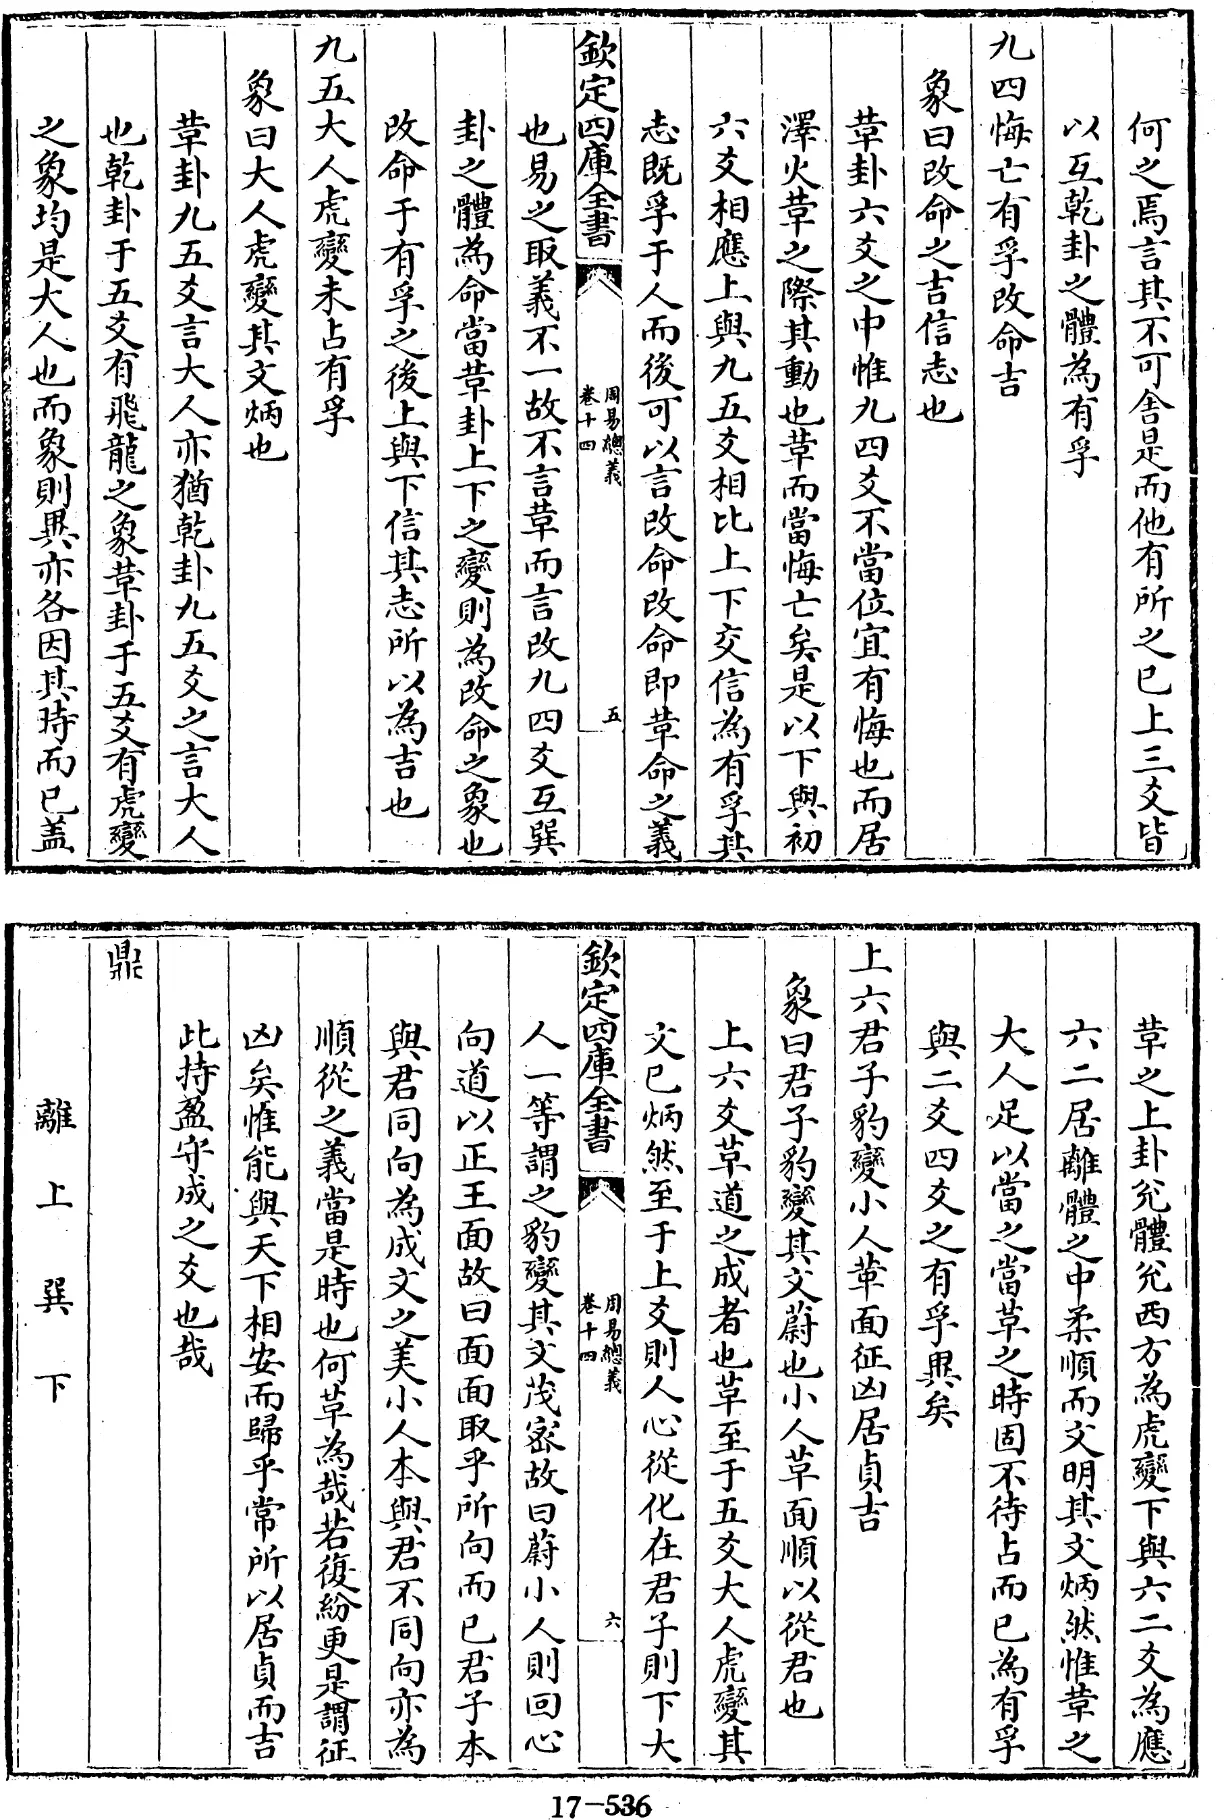 何之焉言其不可舍是而他有所之已上三爻皆
以互乾卦之體為有孚
九四悔亡有孚改命吉
象曰改命之吉信志也
革卦六爻之中惟九四爻不當位宜有悔也而居
澤火革之際其動也革而當悔亡矣是以下與初
六爻相應上與九五爻相比上下交信為有孚其
志既孚于人而後可以言改命改命即革命之義
欽定四庫全書
周易總義
卷十四
五
也易之取義不一故不言革而言改九四爻互巽
卦之體為命當革卦上下之變則為改命之象也
改命于有孚之後上與下信其志所以為吉也
九五大人虎變未占有孚
象曰大人虎變其文炳也
革卦九五爻言大人亦猶乾卦九五爻之言大人
也乾卦于五爻有飛龍之象革卦于五爻有虎變
之象均是大人也而象則異亦各因其時而已盖
革之上卦兊體兊西方為虎變下與六二爻為應
六二居離體之中柔順而文明其文炳然惟革之
大人足以當之當革之時固不待占而已為有孚
與二爻四爻之有孚異矣
上六君子豹變小人革面征凶居貞吉
象曰君子豹變其文蔚也小人革面順以從君也
上六爻革道之成者也革至于五爻大人虎變其
文已炳然至于上爻則人心從化在君子則下大
欽定四庫全書
周易總義
卷十四
六
人一等謂之豹變其文茂宻故曰蔚小人則回心
向道以正王面故曰面面取乎所向而已君子本
與君同向為成文之美小人本與君不同向亦為
順從之義當是時也何革為哉若復紛更是謂征
凶矣惟能與天下相安而歸乎常所以居貞而吉
此持盈守成之爻也哉
鼎
離上巽下
17-536